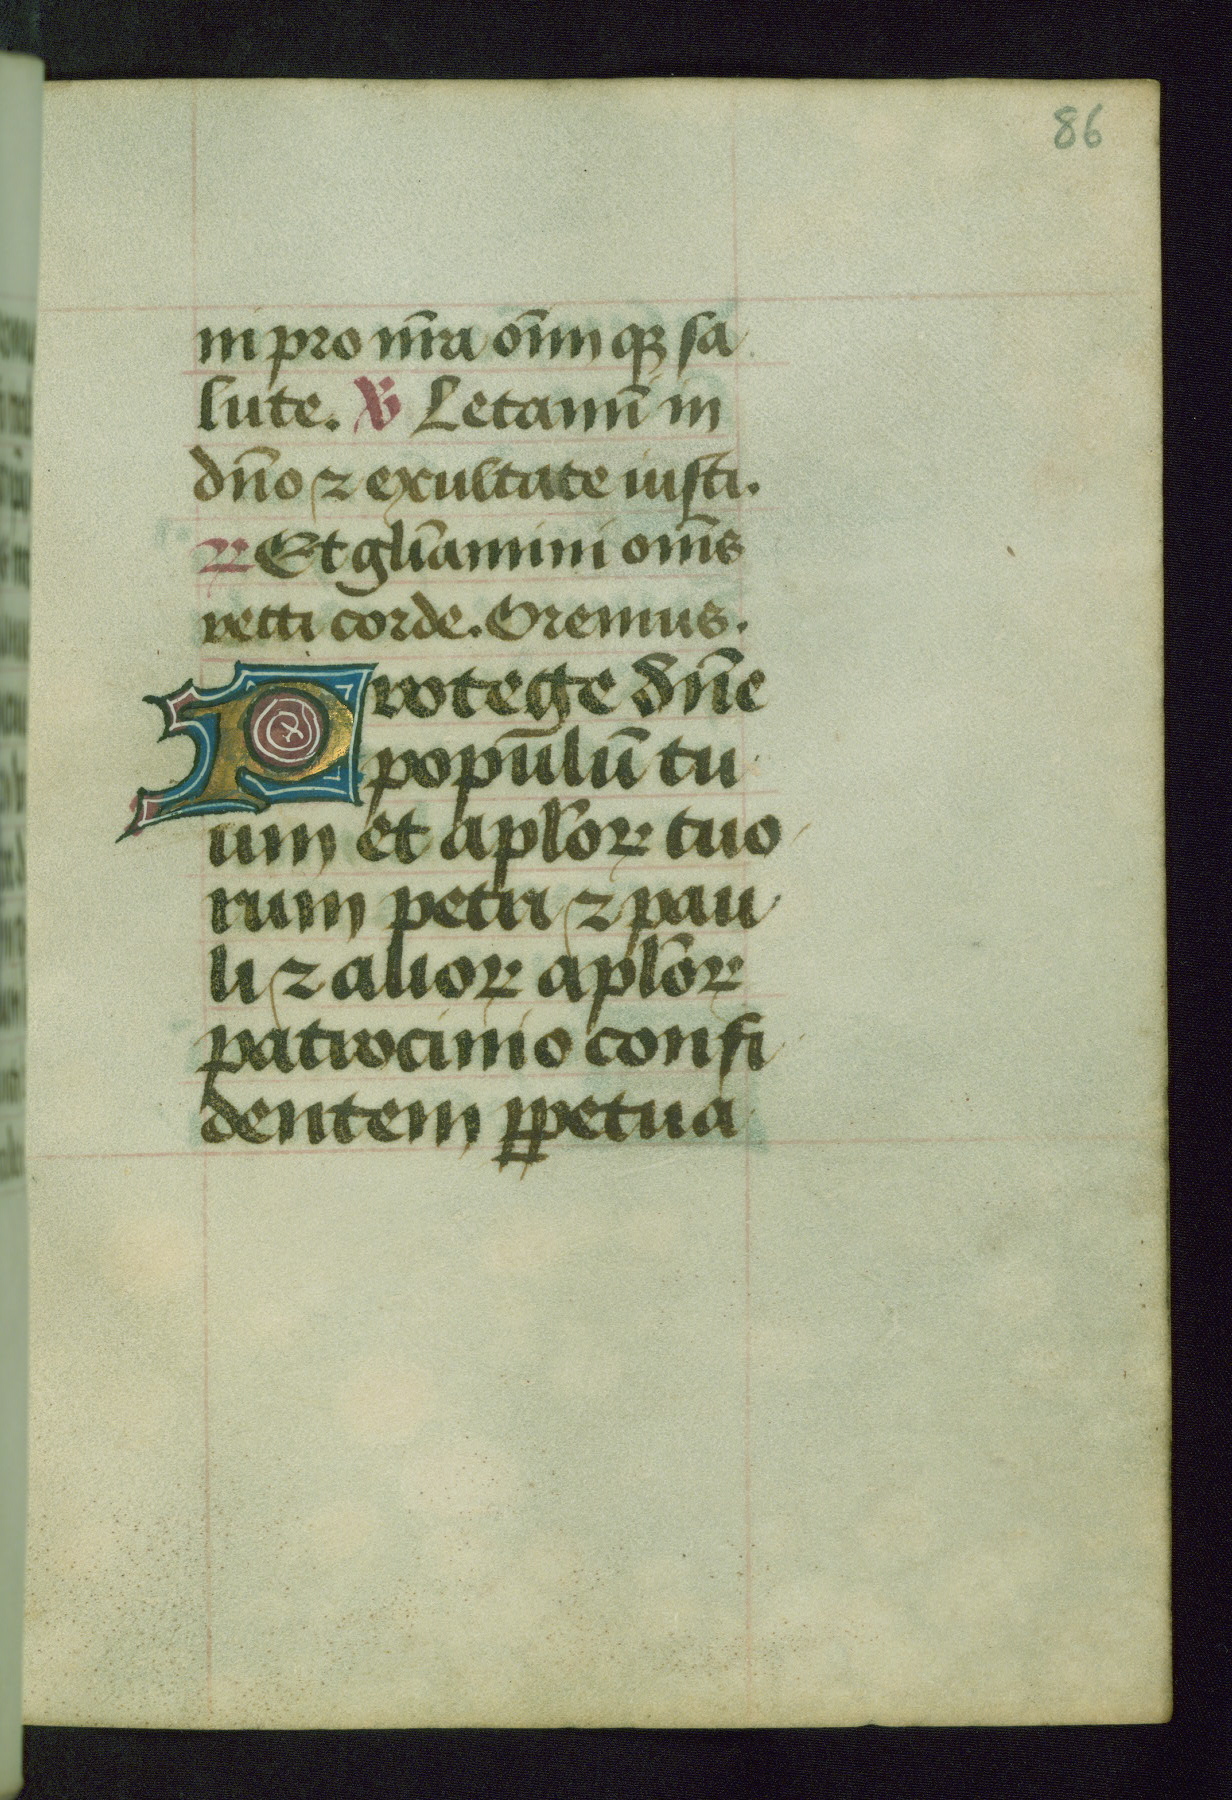 86
ni pro nr̄a om̄niu qꝫ sa
lute. ℣ Letamī in
dn̄o ⁊ exultate iusti.
℟ Et gl̄iamini om̄s
recti corde. Oremus.
Protege dn̄e
populū tu
um et apl̄oꝝ tuo
rum petri ⁊ pau
li ⁊ alioꝝ apl̄oꝝ
patrocinio confi
dentem ꝑpetua